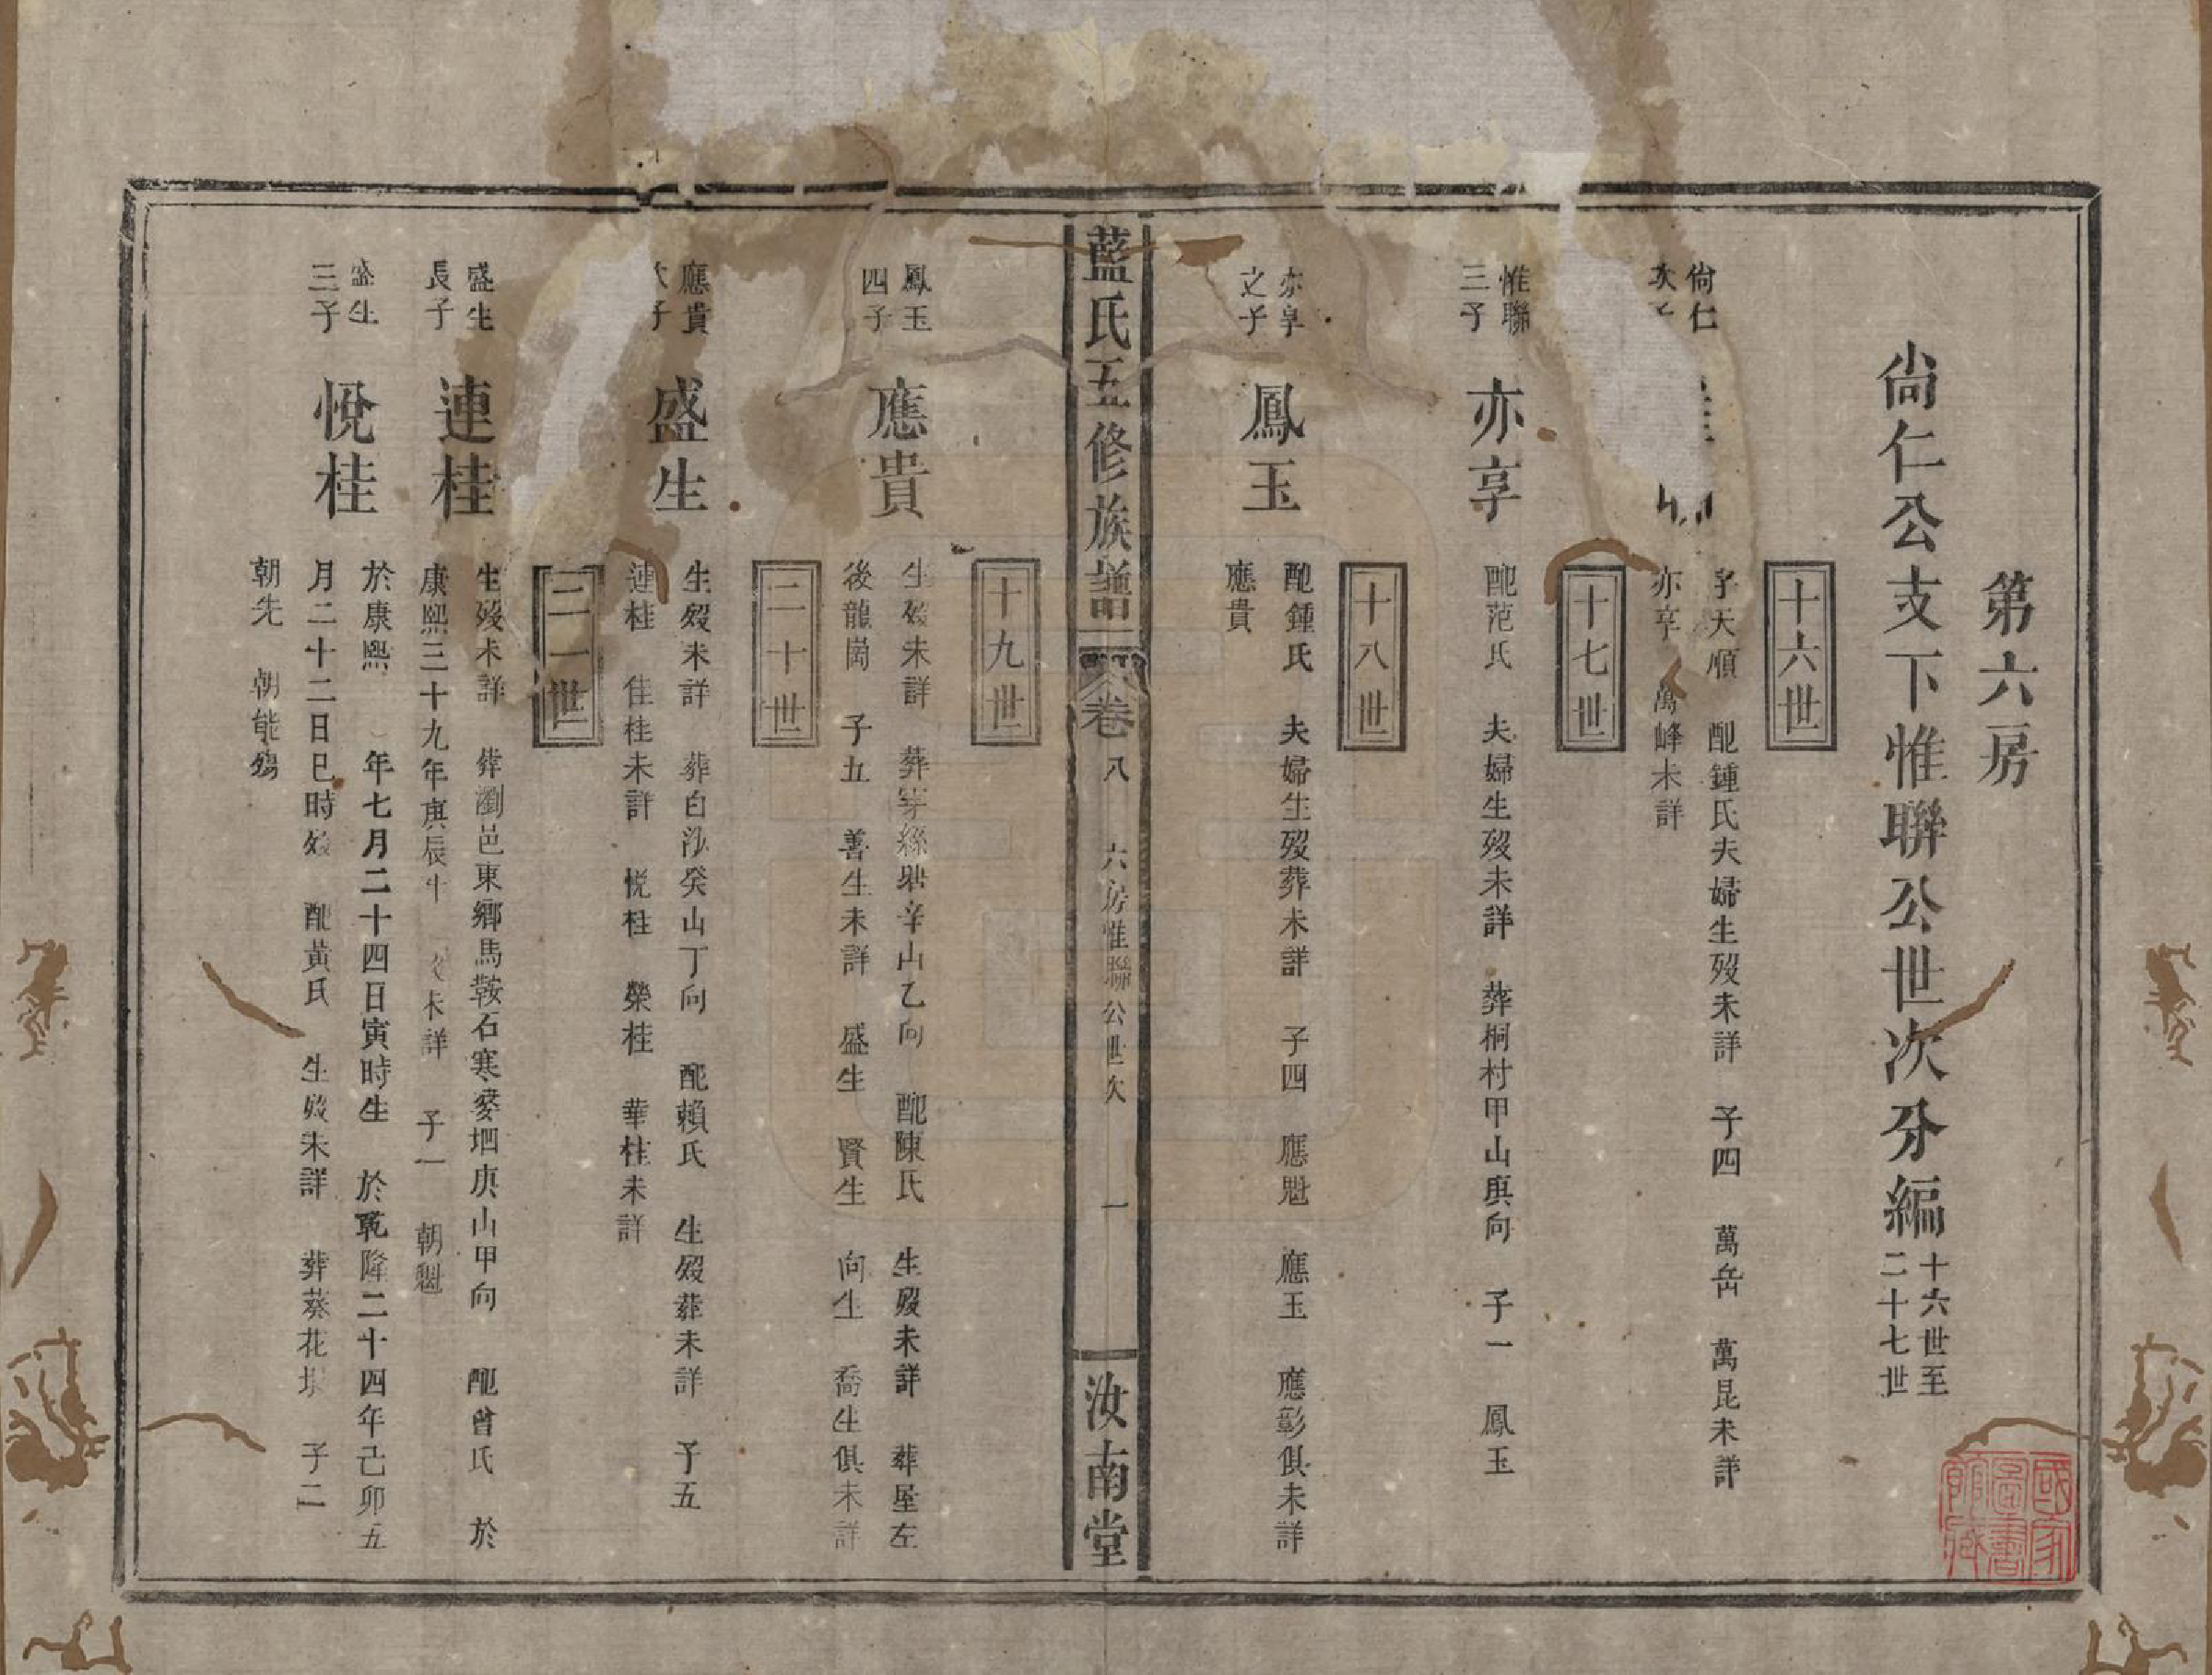 第六房
尙仁公支下惟聯公世次分編
十六世至
二十七世
十六世
尙仁
次子
字天順　配鍾氏夫婦生歿未詳　子四　萬岳　萬昆未詳
亦享　萬峰未詳
十七世
惟聯
三子
亦享
配范氏　夫婦生歿未詳　葬桐村甲山庚向　子一　鳳玉
十八世
亦享
之子
鳳玉
配鍾氏　夫婦生歿葬未詳　子四　應魁　應玉　應彰俱未詳
應貴
藍氏五修族譜
卷八　六房惟聯公世次　一
汝南堂
十九世
鳳玉
四子
應貴
生歿未詳　葬穿絲辛山乙向　配陳氏　生歿未詳　葬屋左
後龍崗　子五　善生未詳　盛生　賢生　向生　喬生俱未詳
二十世
應貴
子
盛生
生歿未詳　葬白沙癸山丁向　配賴氏　生歿葬未詳　子五
連桂　佳桂未詳　悅桂　榮桂　華桂未詳
二一世
盛生
長子
連桂
生歿未詳　葬瀏邑東鄉馬鞍石寒婆坳庚山甲向　配曾氏　於
康熙三十九年庚辰　未詳　子一　朝魁
盛生
三子
悅桂
於康熙　年七月二十四日寅時生　於乾隆二十四年己卯五
月二十二日巳時歿　配黃氏　生歿未詳　葬葵花　子二
朝先　朝能殤
國家圖書館藏